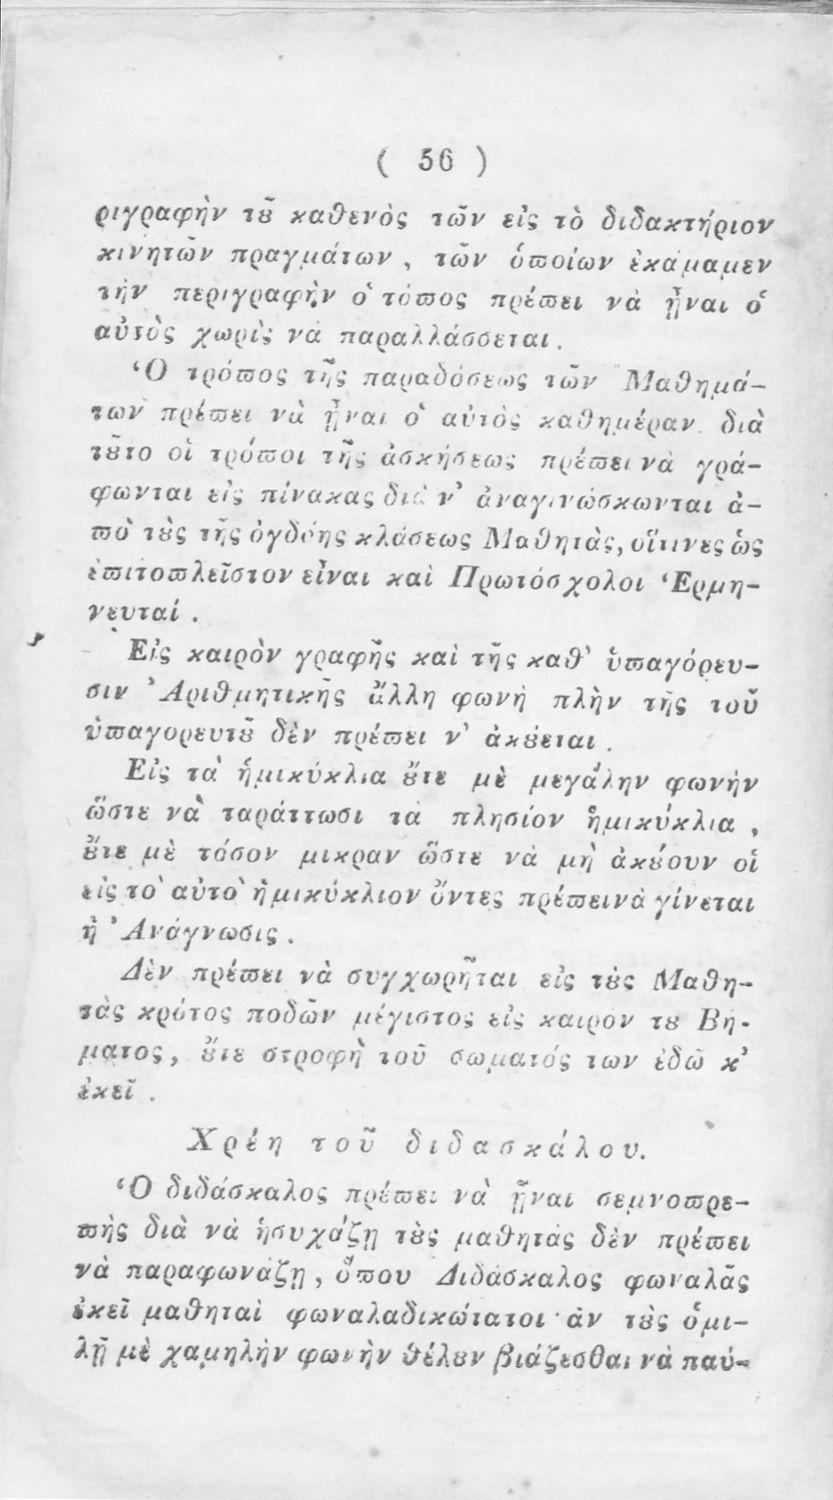 ( 56 )
ριγραφὴν τȣ͂ καθενὸς τῶν εἰς τὸ διδακτήριον
κινητῶν πραγμάτων , τῶν ὁποίων ἐκάμαμεν
τὴν περιγραφὴν ὁ τόπος πρέπει νὰ ᾖναι ὁ
αὐτὸς χωρὶς νὰ παραλλάσσεται .
Ὁ τρόπος τῆς παραδόσεως τῶν Μαθημά-
των πρέπει νὰ ᾖναι ὁ αὐτὸς καθημέραν. διὰ
τȣ͂το οἱ τρόποι τῆς ἀσκήσεως πρέπει νὰ γρά-
φωνται εἰς πίνακας διὰ ν' ἀναγινώσκωνται ἀ-
πὸ τȣ̀ς τῆς ὀγδόης κλάσεως Μαθητὰς, οἵτινες ὡς
ἐπιτοπλεῖστον εἶναι καὶ Πρωτόσχολοι Ἑρμη-
νευταί .
Εἰς καιρὸν γραφῆς καὶ τῆς καθ' ὑπαγόρευ-
σιν Ἀριθμητικῆς ἄλλη φωνὴ πλὴν τῆς τοῦ
ὑπαγορευτȣ͂ δὲν πρέπει ν' ἀκȣ́εται .
Εἰς τὰ ἡμικύκλια ȣ̓́τε μὲ μεγάλην φωνὴν
ὥστε νὰ ταράττωσι τὰ πλησίον ἡμικύκλια ,
ȣ̓́τε μὲ τόσον μικρὰν ὥστε νὰ μὴ ἀκȣ́ουν οἱ
εἰς τὸ αὐτὸ ἡμικύκλιον ὄντες πρέπεινὰ γίνεται
ἡ Ἀνάγνωσις .
Δὲν πρέπει νὰ συγχωρῆται εἰς τȣ̀ς Μαθη-
τὰς κρότος ποδῶν μέγιστος εἰς καιρὸν τȣ Βή-
ματος, ȣ̓́τε στροφὴ τοῦ σωματός των ἐδῶ κ'
ἐκεῖ .
Χρέη τοῦ διδασκάλου.
Ὁ διδάσκαλος πρέπει νὰ ᾖναι σεμνοπρε-
πὴς διὰ νὰ ἡσυχάζῃ τȣ̀ς μαθητὰς δὲν πρέπει
νὰ παραφωνάζῃ , ὅπου Διδάσκαλος φωναλᾶς
ἐκεῖ μαθηταὶ φωναλαδικώτατοι · ἀν τȣ̀ς ὁμι-
λῇ μὲ χαμηλὴν φωνὴν θέλȣν βιάζεσθαι νὰ παύ-